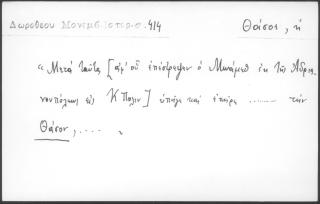 Δωροθέου Μονεμβ. ιστορ. σ. 414
Θάσος, ἡ
« Μετὰ ταῦτα [ἀφ' οὗ ἐπέστρεψεν ὁ Μωάμεθ ἐκ τῆς Ἀδρια-
νουπόλεως εἰς ΚΠολιν] ὑπῆγε καὶ ἐπῆρε ........ τὴν
Θάσον, .....